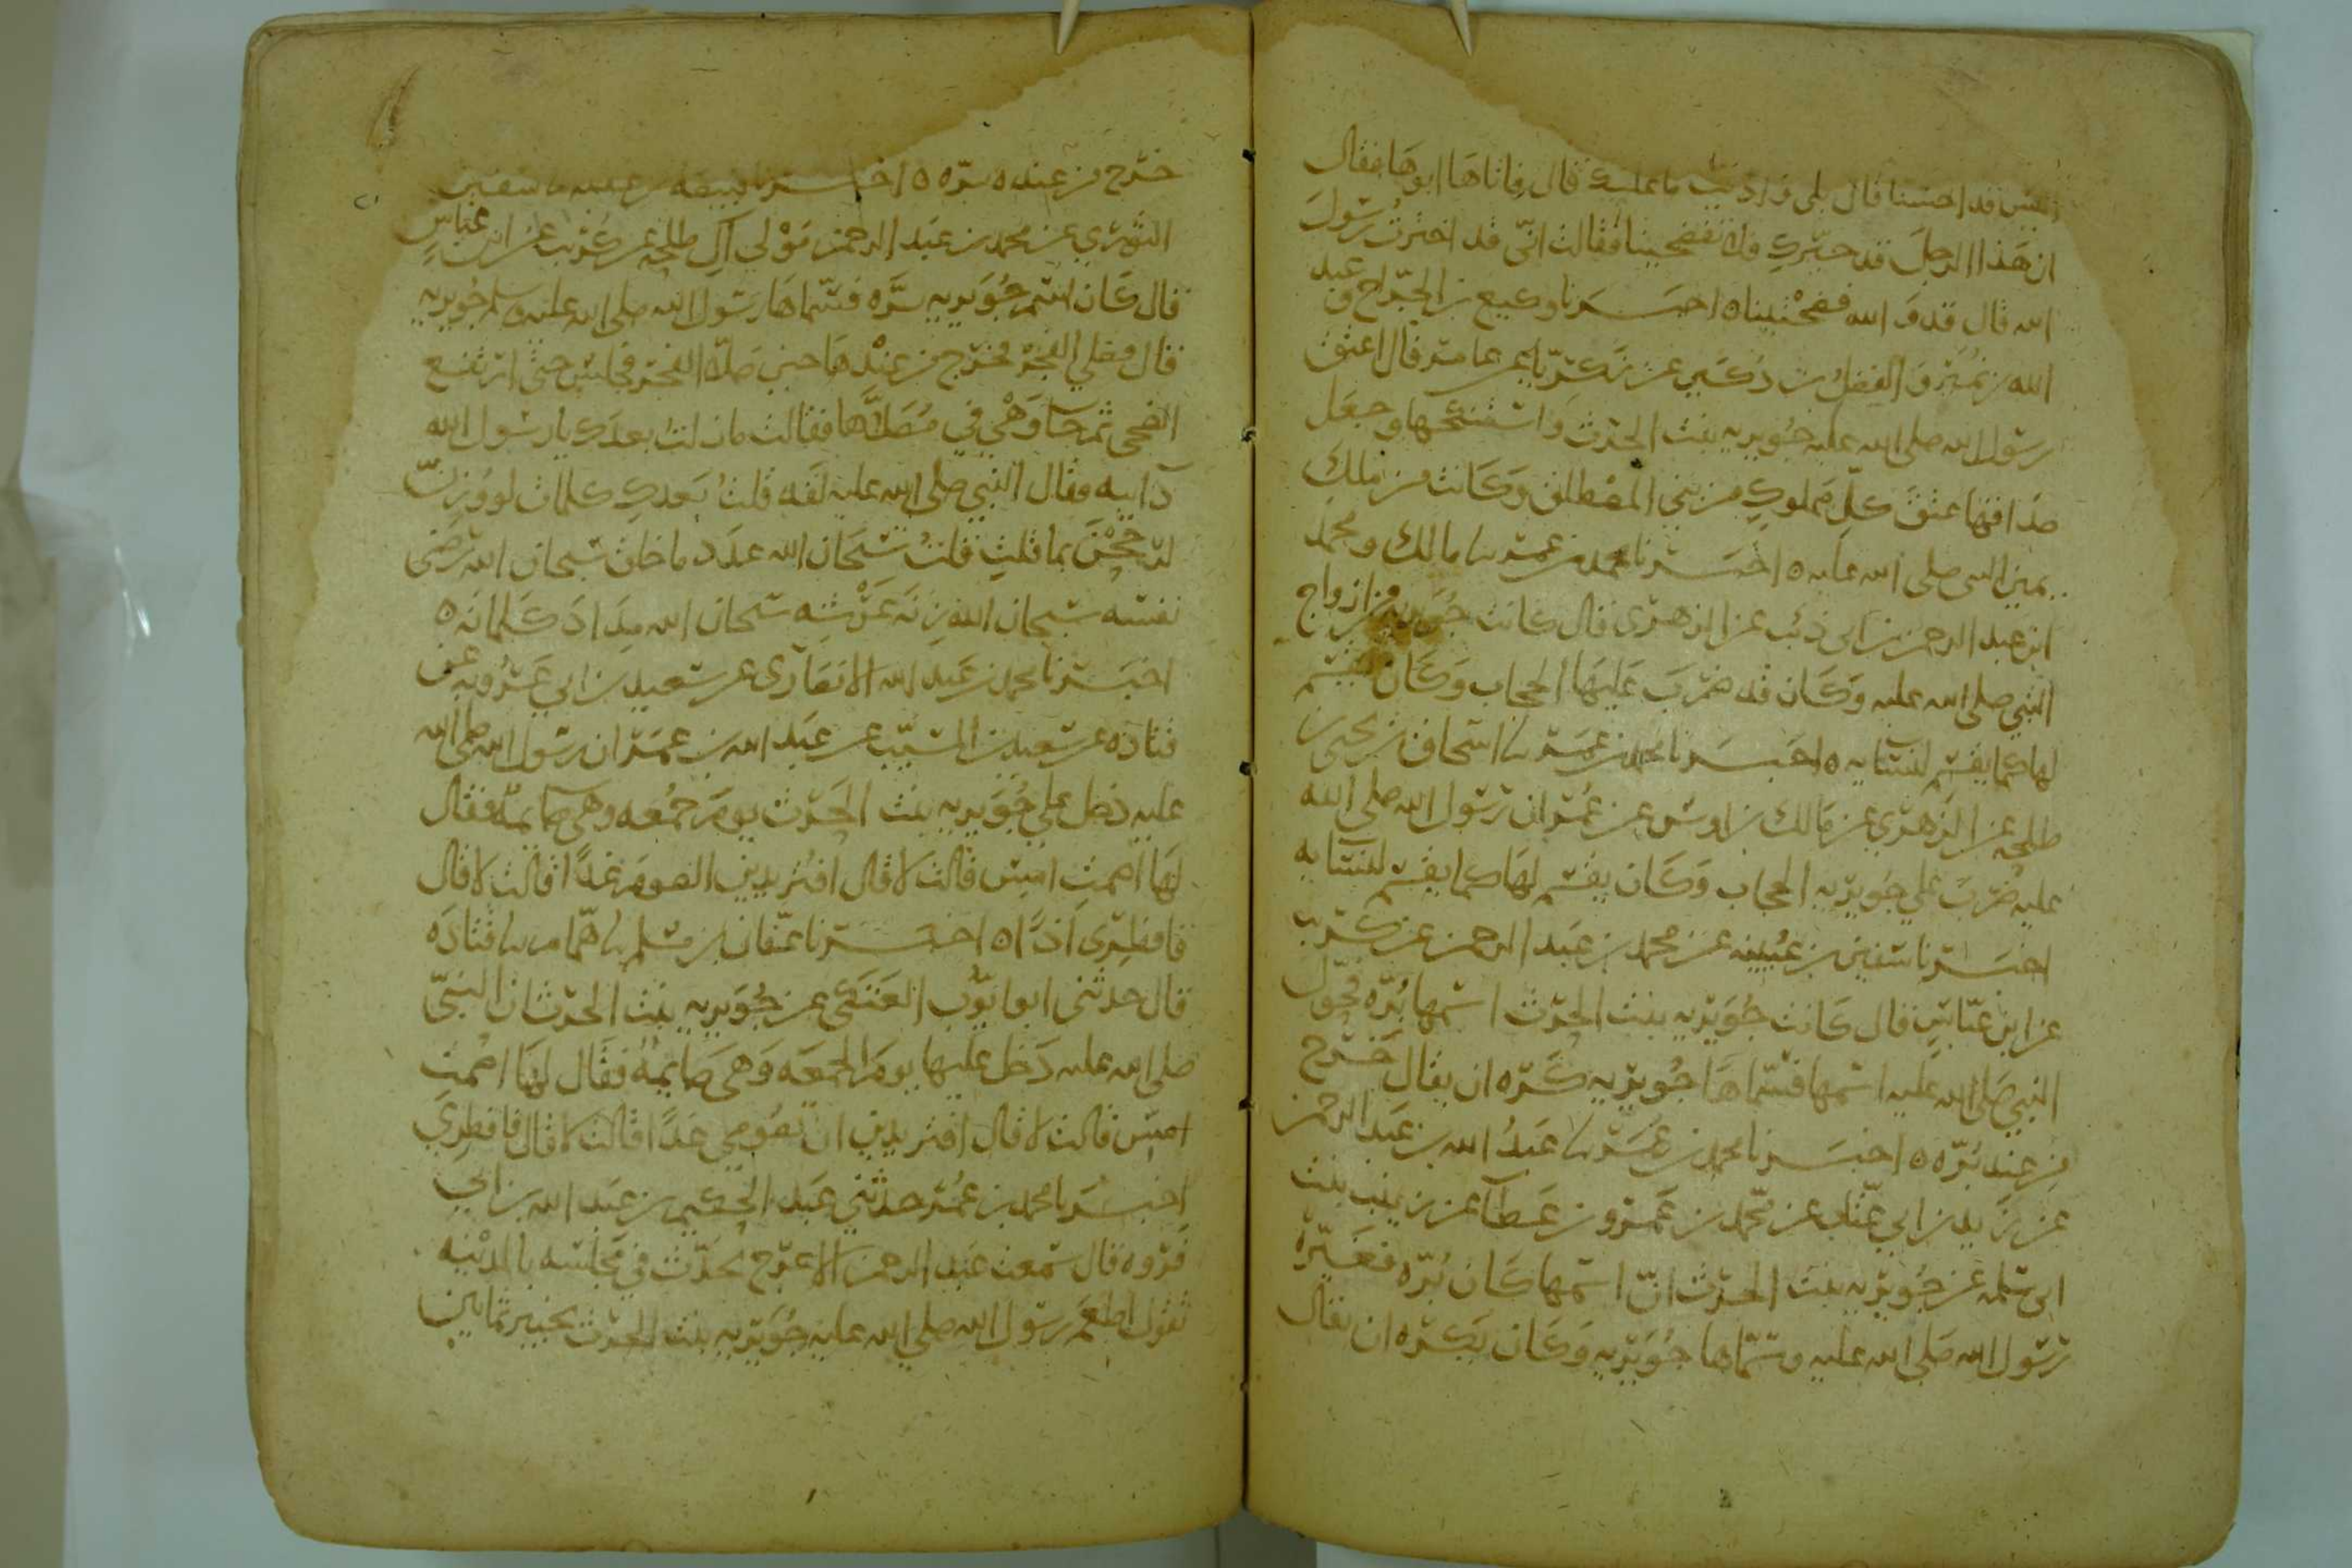 اليس قد احسنا قال بلى وادىت ما عليك قال فاتاها ابوها فقال
ان هذا الرجل قد خيّركِ فلا تفضحينا فقالت انّى قد اخترتُ رسولَ
الله قال قد وَ الله فضحْتِينا ه اخبــرنا وكيع بن الجرّاح و عبد
الله بن نمير وَ الفضلُ بن دُكَين عن زكريّا عن عامر قال اعتق
رسول الله صلى الله عليه جويريه بنت الحرث واستنكحها وجعَل
صَداقها عتقَ كلّ مملوكٍ من بني المصْطلق وَكانت من ملكِ
يمين النبى صلى الله عليه ه اخبــرنا محمد بن عمر ىىا مالك ومحمد
ابن عبد الرحمن بن ابى ذئب عن الزهرى قال كانت جُويريه من ازواج
النبي صلى الله عليه وَكان قد ضَرَبَ عَليها الحجاب وَكان يقسم
لها كما يقسم لنسايه ه اخبــرنا محمد بن عمر ىىا اسحاق بن يحيى بن
طلحه عن الزهري عن مالك بن اوس عن عمر ان رسول الله صلى الله
عليه ضَربَ على جويريه الحجاب وَكان يقسم لها كما يقسم لنسايه
اخبــرنا سفين بن عُيينه عن محمد بن عبد الرحمن عن كريب
عن ابن عبّاس قال كانت جُوَيريه بنت الحرث اسمها بَرّه فحوّل
النبي صَلى الله عليه اسمها فسَمّاها جُويريه كرِه ان يقال خرج
من عند بَرّه ه اخبــرنا محمد بن عمر ىىا عبدُ الله بن عبد الرحمن
عن زيد بن ابي عتّاب عن محمّد بن عَمرو بن عَطآء عن زينب بنت
ابى سلمه عن جويريه بنت الحرث انّ اسمها كان بَرّه فغيّره
رسول الله صَلى الله عليه وسمّاها جُوَيريه وَكان يَكره ان يقال
خرج من عند بره ه اخبــرنا قبيصه بن عقبه ىا سفين
الثوري عن محمد بن عَبد الرحمن مَوْلى آل طلحه عن كريب عن ابن عباسٍ
قال كان اسم جُوَيريه بَرّه فسَمّاها رسول الله صلى الله عليه وسلم جُويريه
قال فصلي الفجر فخرج من عندها حين صلّا الفجر فجلس حتى ارتفع
الضحى ثم جآء وَهْي في مُصَلّاها فقالت ما زلت بعدك يا رسول الله
دآيبه فقال النبي صلى الله عليه لقد قلتُ بَعدكِ كلمات لو وُزِنّ
لرَجَحْنَ بما قلتِ قلتُ سُبحَان الله عدَد ما خلق سبحان الله رضى
نفسه سبحان الله زِنَه عَرْشِه سبحان الله مِدَادَ كَلماته ه
اخبَــرنا محمد بن عَبد الله الانصَارى عن سعيد بن ابي عَرُوبه عن
قتادَه عن سَعيد بن المسيّب عن عَبد الله بن عمر ان رسول الله صلى الله
عليه دخل على جُوَيريه بنت الحرث يومَ جمُعه وهى صايمه فقال
لها اصمتِ امس قالت لا قال افتريدين الصومَ غدًا قالت لا قال
فافطِرى اذًا ه اخبــرنا عفّان بن مسلم ىىا همّام ىىا قتادَه
قال حدثنى ابو ايّوب العَتكى عن جُوَيريه بنت الحرث ان النبيّ
صلى الله عليه دَخل عليها يومَ الجمعَه وَهى صَايمهٌ فقال لها اصمتِ
امس قالت لا قال افتريدين ان تصُومي غدًا قالت لا قال فافطري
اخبــرنا محمد بن عُمر حدثني عَبد الحكيم بن عَبد الله بن ابي
فَروه قال سمعت عَبد الرحمن الاعرَج يحدّث في مجلسه بالمدينه
يقول اطعَم رسول الله صلي الله عليه جُوَيريه بنت الحرث بخيبر ثمانين